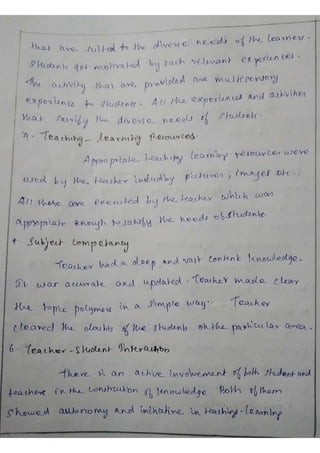 that are suited to the diverse needs of the learners.
Students get motivated by such relevant experiences.
The activity that are provided are multisensory
experience to students. All the experiences and activities
that satisfy the diverse needs of students.
Teaching - learning Resources
Appropriate teaching learning resources were
used by the teacher including pictures, images etc..
All those are executed by the teacher which was
appropriate enough to satisfy the needs of students.
Subject competancy
Teacher had a deep and vast content knowledge.
It was accurate and updated. Teacher made clear
the topic polymers in a simple way. Teacher
cleared the doubts of the students on the particular area.
6. Teacher - Student Interaction
There is an active involvement of both student and
teachers in the construction of knowledge. Both of them
showed autonomy and initiative in teaching-learning